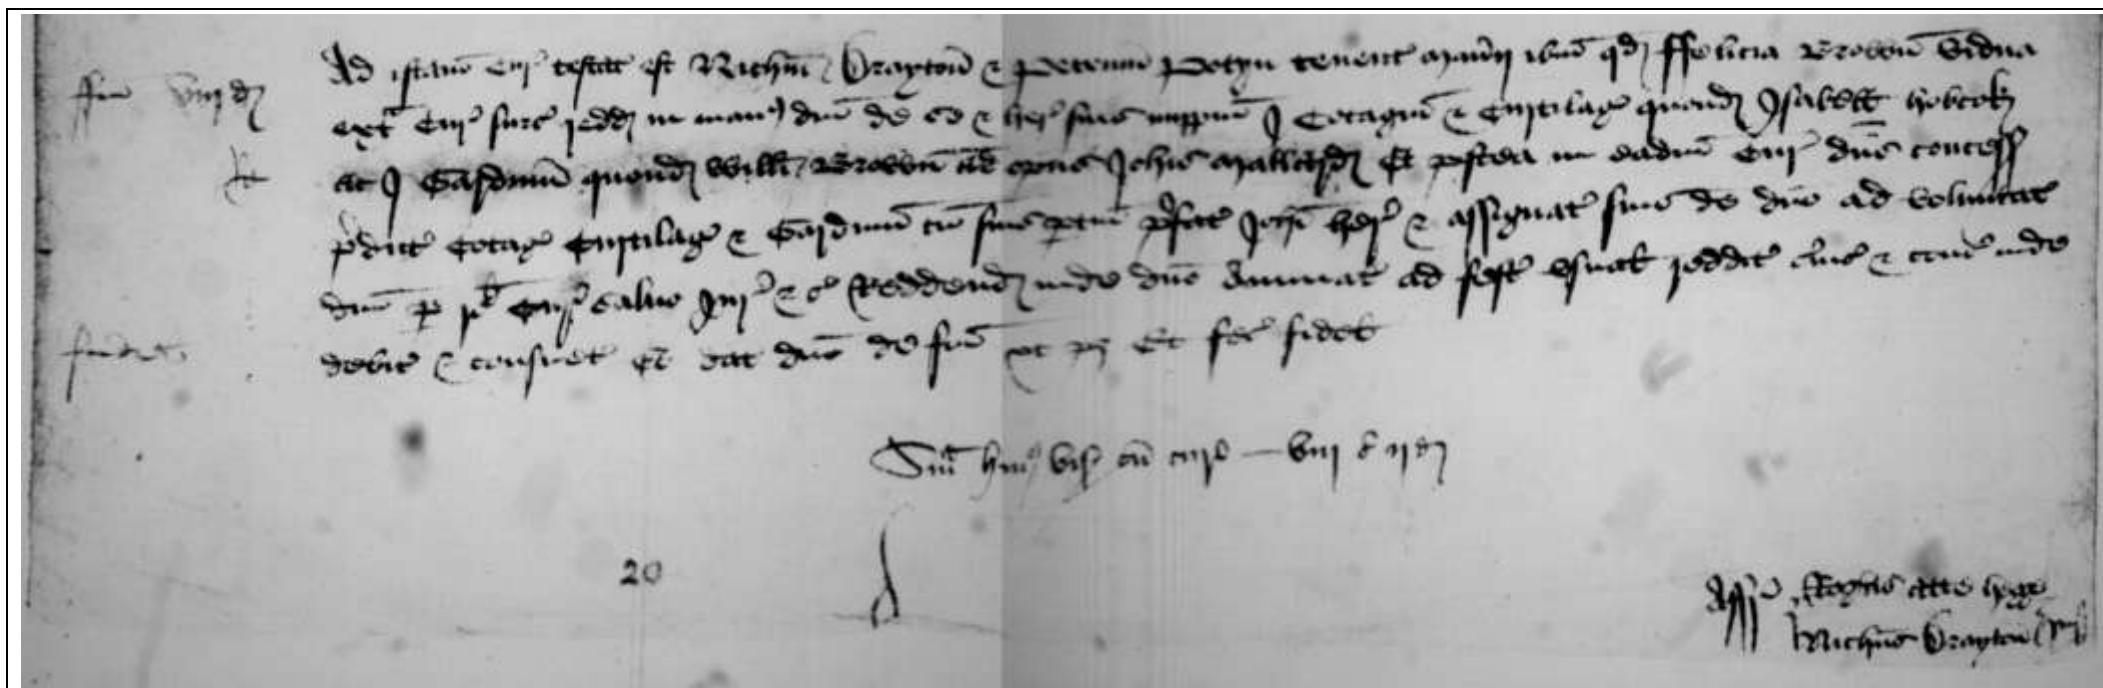 ffin viij d
Ad istam Cur testat est Nichm Drayton & Petrum Potyn tenent Manii ibm qd ffelicia Brown vidua
ext Cur surs redd in man dni de eo & her suis imppm j Cotagm & Curtilag quond Isabell
ac j Gardinum quond Willi Brown ad opus Johis Mallard Et postea in eadm Cur dns concess
pdict Cotag Curtilag & Gardinum cu suis ptin pfat Johi her & assignat suis de dno ad voluntat
dni p Cur Salvo Jur &c Reddend inde dno Annuat ad fest usual reddit & inde
debit & consuet Et dat dno de fin ut pz Et fec fidel
Sma hui vis cu cur — viij s ij d
20
Aff Rogus atte
Nichus Drayton Jur